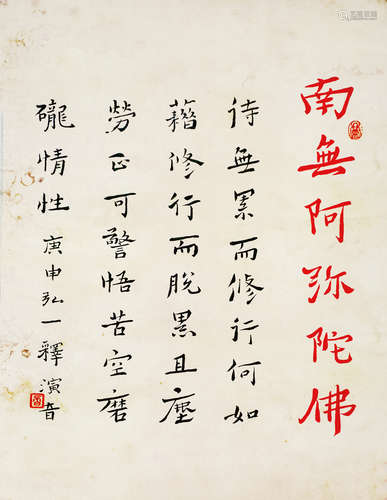 南無阿弥陀佛
待無累而修行何如
藉修行而脱累且塵
勞正可警悟苦空磨
礲情性 庚申弘一釋演音